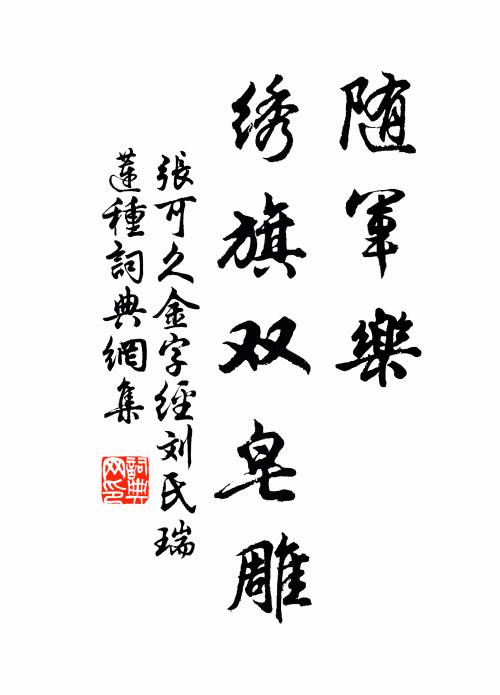 随軍樂
绣旗双皂雕
張可久金字經刘氏瑞
蓮種詞典網集
詞典
网印